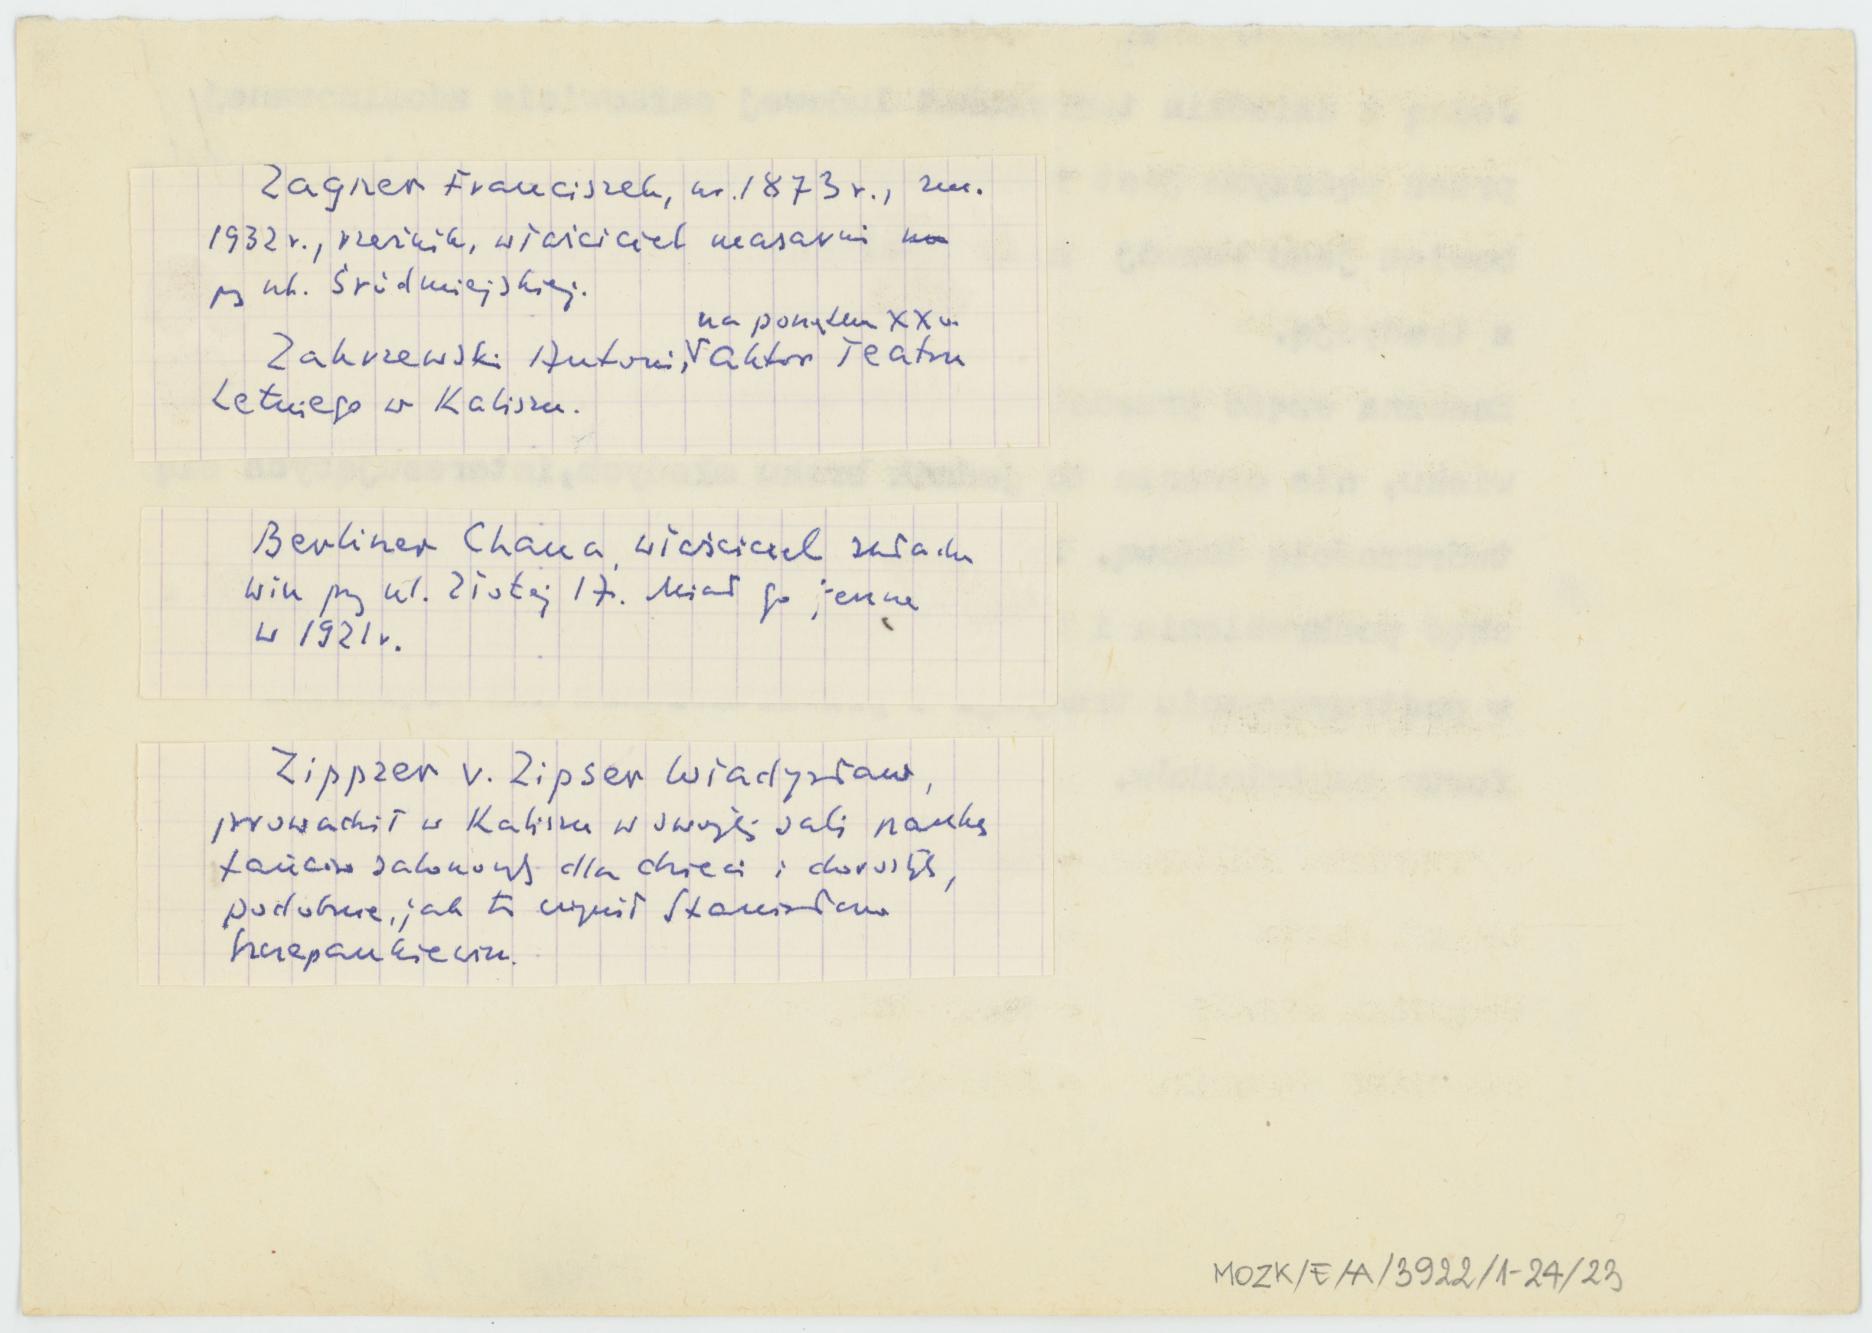 Zagner Franciszek, ur. 1873 r., zm.
1932 r., rzeźnik, właściciel masarni na
przy ul. Śródmiejskiej.
na początku XX w.
Zakrzewski Antoni, aktor Teatru
Letniego w Kaliszu.
Berliner Chana, właściciel składu
win przy ul. Złotej 17. Miał go jeszcze
w 1921 r.
Zippzer v. Zipser Władysław,
prowadził w Kaliszu w swojej sali naukę
tańców salonowych dla dzieci i dorosłych,
podobnie, jak to czynił Stanisław
Szczepankiewicz.
MOZK/E/A/3922/1-24/23